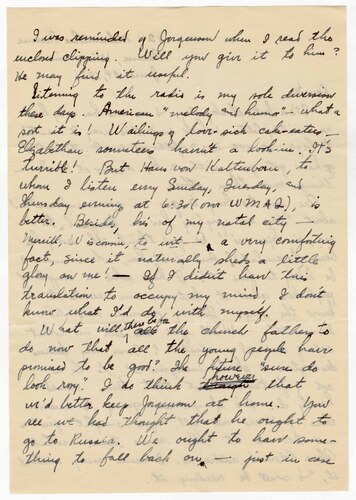 I was reminded of Jorgenson when I read the
inclosed clipping. Will you give it to him?
He may find it useful.
Listening to the radio is my sole diversion
these days. American "melody and humor" – what a
sort it is! Wailings of love-sick cake-eaters –
Elizabethan sonneteers haven't a look-in. It's
turrible! But Hans von Kaltenborn, to
whom I listen every Sunday, Tuesday, and
Thursday evening at 6:30 (over WMAQ), is
better. Besides, he's of my natal city –
Merrill, Wisconsin, to wit – a very comforting
fact, since it naturally sheds a little
glory on me! – If I didn't have this
translation to occupy my mind, I don't
know what I'd do with myself.
What will there be for all the church fathers to
do now that all the young people have
promised to be good? The future "sure do
look rosy." I do think however that
we'd better keep Jorgenson at home. You
see we had thought that he ought to
go to Russia. We ought to have some-
thing to fall back on, – just in case